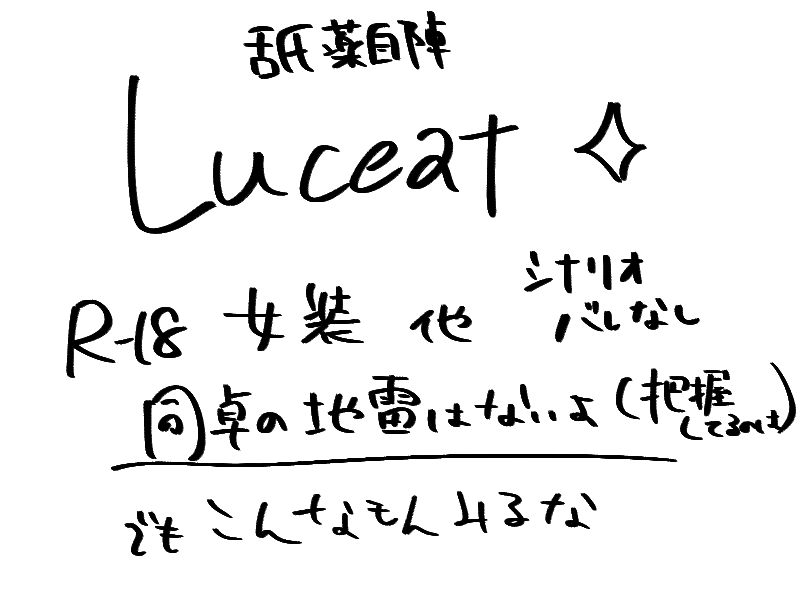 舐薬自陣
Luceat
R-18 女装 他 シナリオ
バレなし
同卓の地雷はないよ(把握
してるのは)
でもこんなもんみるな